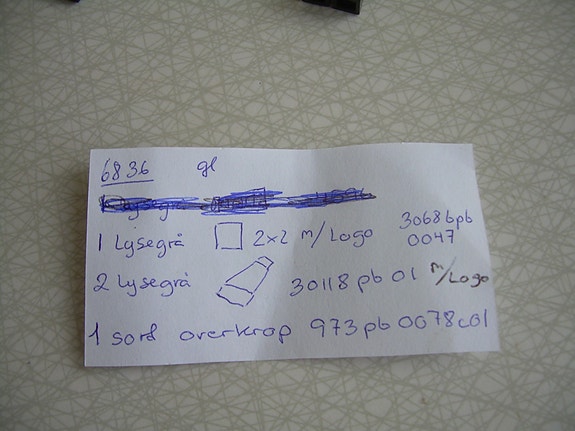 6836 gl
1 Lysegrå 2x2 m/Logo 3068bpb
0047
2 Lysegrå 30118pb01 m/Logo
1 sort overkrop 973pb0078c01